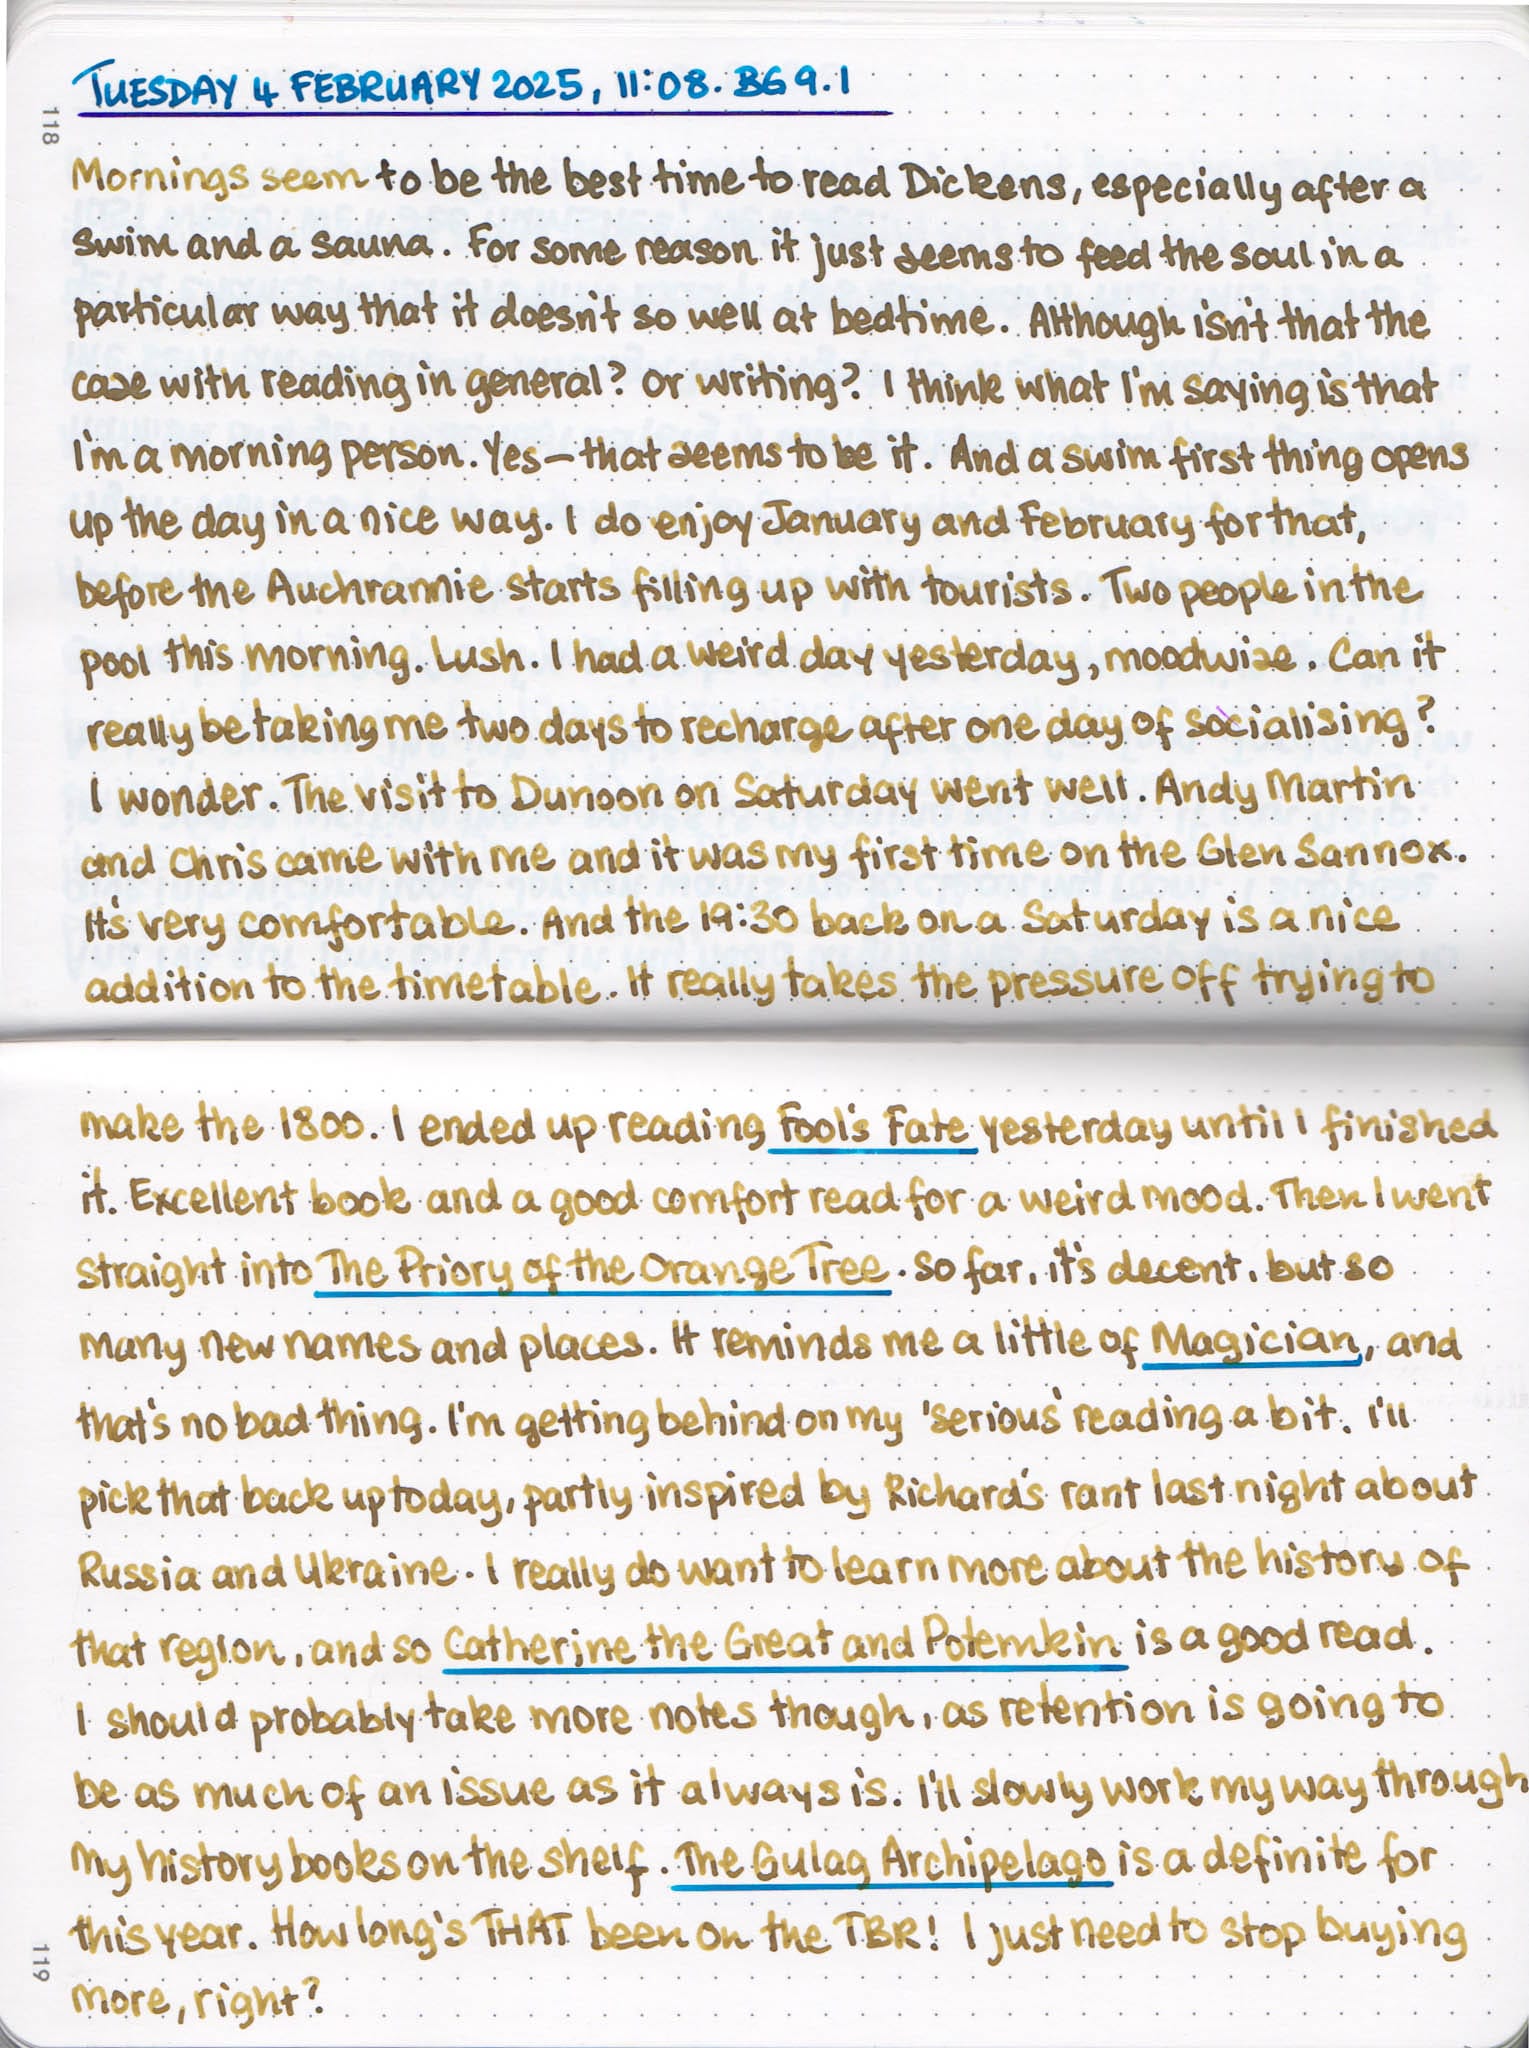 TUESDAY 4 FEBRUARY 2025, 11:08. BG 9.1
118
Mornings seem to be the best time to read Dickens, especially after a
swim and a sauna. For some reason it just seems to feed the soul in a
particular way that it doesn't so well at bedtime. Although isn't that the
case with reading in general? Or writing? I think what I'm saying is that
I'm a morning person. Yes – that seems to be it. And a swim first thing opens
up the day in a nice way. I do enjoy January and February for that,
before the Auchrannie starts filling up with tourists. Two people in the
pool this morning. Lush. I had a weird day yesterday, moodwise. Can it
really be taking me two days to recharge after one day of socialising?
I wonder. The visit to Dunoon on Saturday went well. Andy Martin
and Chris came with me and it was my first time on the Glen Sannox.
It's very comfortable. And the 19:30 back on a Saturday is a nice
addition to the timetable. It really takes the pressure off trying to
make the 1800. I ended up reading Fool's Fate yesterday until I finished
it. Excellent book and a good comfort read for a weird mood. Then I went
straight into The Priory of the Orange Tree. So far, it's decent, but so
many new names and places. It reminds me a little of Magician, and
that's no bad thing. I'm getting behind on my 'serious' reading a bit. I'll
pick that back up today, partly inspired by Richard's rant last night about
Russia and Ukraine. I really do want to learn more about the history of
that region, and so Catherine the Great and Potemkin is a good read.
I should probably take more notes though, as retention is going to
be as much of an issue as it always is. I'll slowly work my way through
my history books on the shelf. The Gulag Archipelago is a definite for
this year. How long's THAT been on the TBR! I just need to stop buying
more, right?
119